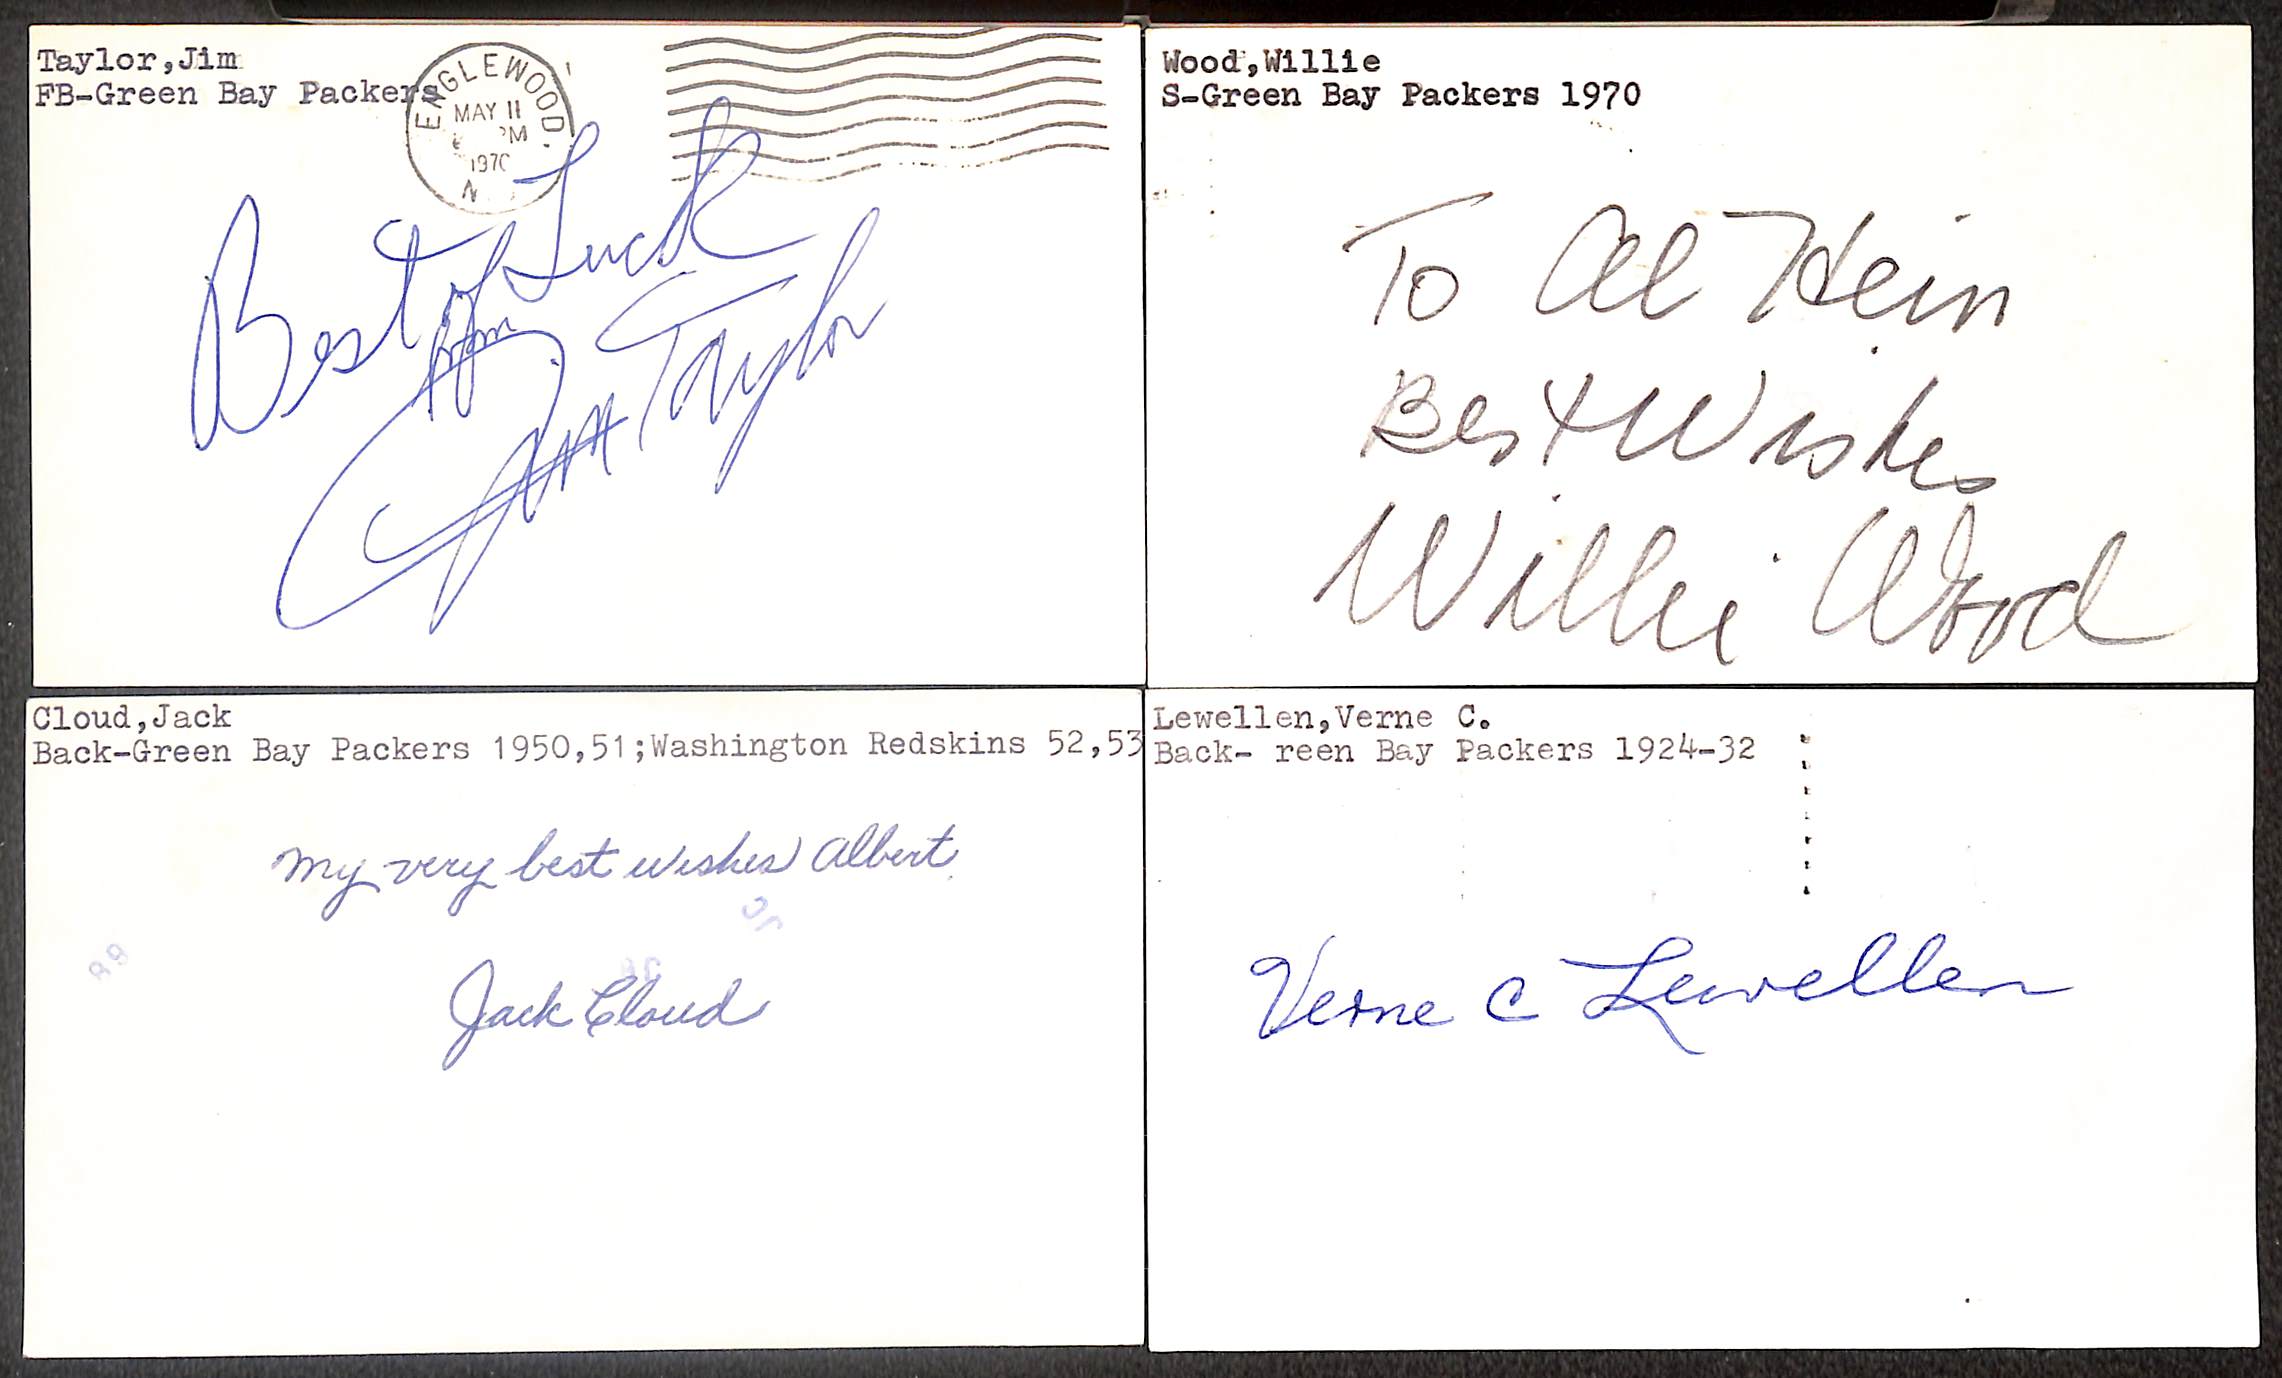 Taylor,Jim
FB-Green Bay Packers
ENGLEWOOD
MAY 11
PM
1970
N
Best of Luck
Jim Taylor
Wood,Willie
S-Green Bay Packers 1970
To Al Hein
Best Wishes
Willie Wood
Cloud,Jack
Back-Green Bay Packers 1950,51;Washington Redskins 52,53
My very best wishes Albert.
Jack Cloud
Lewellen,Verne C.
Back- reen Bay Packers 1924-32
Verne C Lewellen